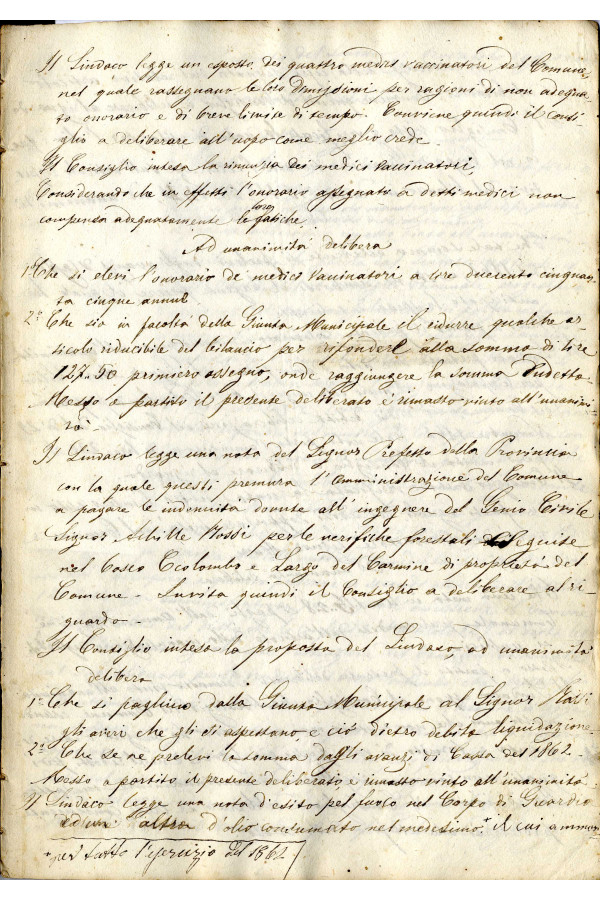 Il Sindaco legge un esposto dei quattro medici vaccinatori del Comune,
nel quale rassegnano le loro dimissioni per ragioni di non adegua-
to onorario e di breve limite di tempo. Conviene quindi il Consi-
glio a deliberare all'uopo come meglio crede.
Il Consiglio intesa la rinunzia dei medici vaccinatori,
Considerando che in effetti l'onorario assegnato a detti medici non
compensa adeguatamente le loro fatiche,
Ad unanimità delibera
1° Che si elevi l'onorario de' medici vaccinatori a lire duecento cinquan-
ta cinque annue.
2° Che sia in facoltà della Giunta Municipale il ridurre qualche ar-
ticolo riducibile del bilancio per rifondere alla somma di lire
127.50 primiero assegno, onde raggiungere la somma sudetta.
Messo a partito il presente deliberato è rimasso vinto all'unanimi-
tà
Il Sindaco legge una nota del Signor Prefetto della Provincia
con la quale questi premura l'amministrazione del Comune
a pagare le indennità dovute all'ingegnere del Genio Civile
Signor Achille Rossi per le verifiche forestali eseguite
nel bosco Ecolombo e Largo del Carmine di proprietà del
Comune - Invita quindi il Consiglio a deliberare al ri-
guardo -
Il Consiglio intesa la proposta del Sindaco, ad unanimità
delibera
1° Che si paghino dalla Giunta Municipale al Signor Rossi
gli averi che gli si aspettano, e ciò dietro debita liquidazione.
2° Che se ne prelevi la somma dagli avanzi di Cassa del 1862 -
Messo a partito il presente deliberato, è rimasso vinto all'unanimità
Il Sindaco legge una nota d'esito pel fuoco nel Corpo di Guardia
ed altra d'olio consumato nel medesimo + il cui ammon-
+ per tutto l'esercizio del 1862